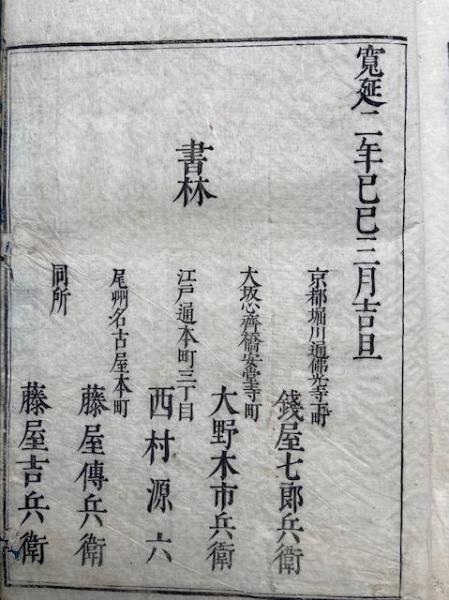 寛延二年己巳三月吉旦
書林
京都堀川通佛光寺町
錢屋七郎兵衛
大坂心齊橋安堂寺町
大野木市兵衛
江戸通本町三丁目
西村源六
尾州名古屋本町
藤屋傳兵衛
同所
藤屋吉兵衛